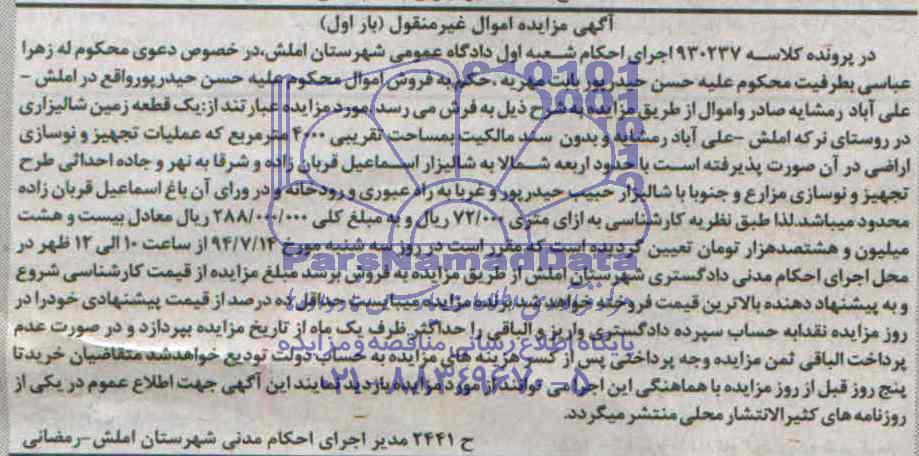 آگهی مزایده اموال غیرمنقول (بار اول)
در پرونده کلاسه ۹۳۰۲۳۷ اجرای احکام شعبه اول دادگاه عمومی شهرستان املش،در خصوص دعوی محکوم له زهرا
عباسی بطرفیت محکوم علیه حسن حیدرپور بابت مهریه، حکم به فروش اموال محکوم علیه حسن حیدرپورواقع در املش -
علی آباد رمشایه صادر واموال از طریق مزایده به شرح ذیل به فرش می رسد.موردمزایده عبارتند از:یک قطعه زمین شالیزاری
در روستای نرکه املش -علی آباد رمشایه و بدون سند مالکیت بمساحت تقریبی ۴۰۰۰ مترمربع که عملیات تجهیز و نوسازی
اراضی در آن صورت پذیرفته است با حدود اربعه شمالا به شالیزار اسماعیل قربان زاده و شرقا به نهر و جاده احداثی طرح
تجهیز و نوسازی مزارع و جنوبا با شالیزار حبیب حیدرپور و غربا به راه عبوری و رودخانه و در ورای آن باغ اسماعیل قربان زاده
محدود میباشد.لذا طبق نظریه کارشناسی به ازای متری ۷۲/۰۰۰ ریال و به مبلغ کلی ۲۸۸/۰۰۰/۰۰۰ ریال معادل بیست و هشت
میلیون و هشتصدهزار تومان تعیین گردیده است که مقرر است در روز سه شنبه مورخ ۹۴/۷/۱۴ از ساعت ۱۰ الی ۱۲ ظهر در
محل اجرای احکام مدنی دادگستری شهرستان املش از طریق مزایده به فروش برسد مبلغ مزایده از قیمت کارشناسی شروع
و به پیشنهاد دهنده بالاترین قیمت فروخته خواهد شد.برنده مزایده میبایست حداقل ده درصد از قیمت پیشنهادی خودرا در
روز مزایده نقدابه حساب سپرده دادگستری واریز و الباقی را حداکثر ظرف یک ماه از تاریخ مزایده بپردازد و در صورت عدم
پرداخت الباقی ثمن مزایده وجه پرداختی پس از کسر هزینه های مزایده به حساب دولت تودیع خواهدشد متقاضیان خریدتا
پنج روز قبل از روز مزایده با هماهنگی این اجرا می توانند از مورد مزایده بازدید نمایند این آگهی جهت اطلاع عموم در یکی از
روزنامه های کثیرالانتشار محلی منتشر میگردد.
ح ۲۴۴۱ مدیر اجرای احکام مدنی شهرستان املش-رمضانی
ParsNamadData
پایگاه اطلاع رسانی مناقصه و مزایده
۰۲۱-۸۸۳۴۹۶۷۰-۵